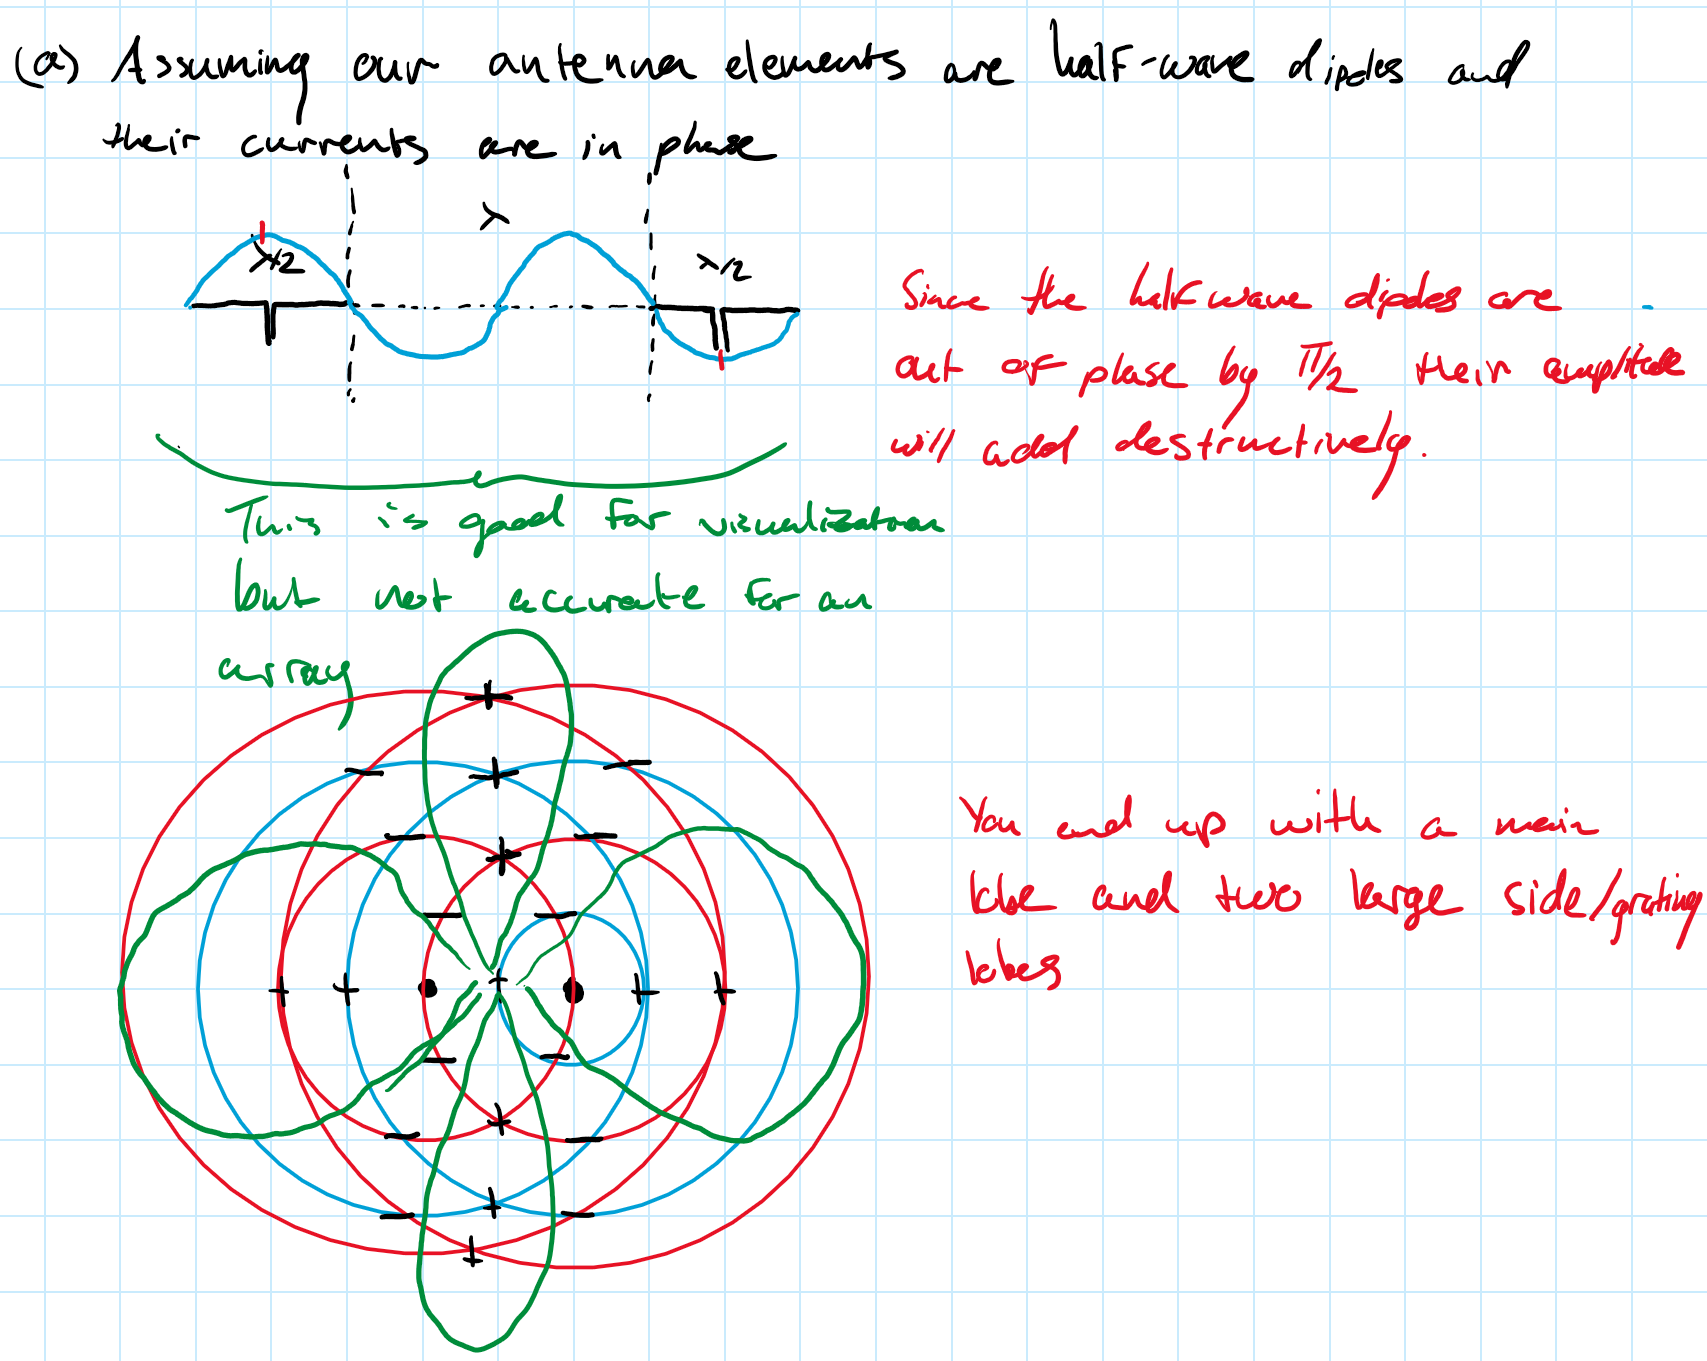 (a) Assuming our antenna elements are half-wave dipoles and
their currents are in phase
λ
λ/2
λ/2
Since the half wave dipoles are
out of phase by π/2 their amplitude
will add destructively.
This is good for visualization
but not accurate for an
array
You end up with a main
lobe and two large side/grating
lobes